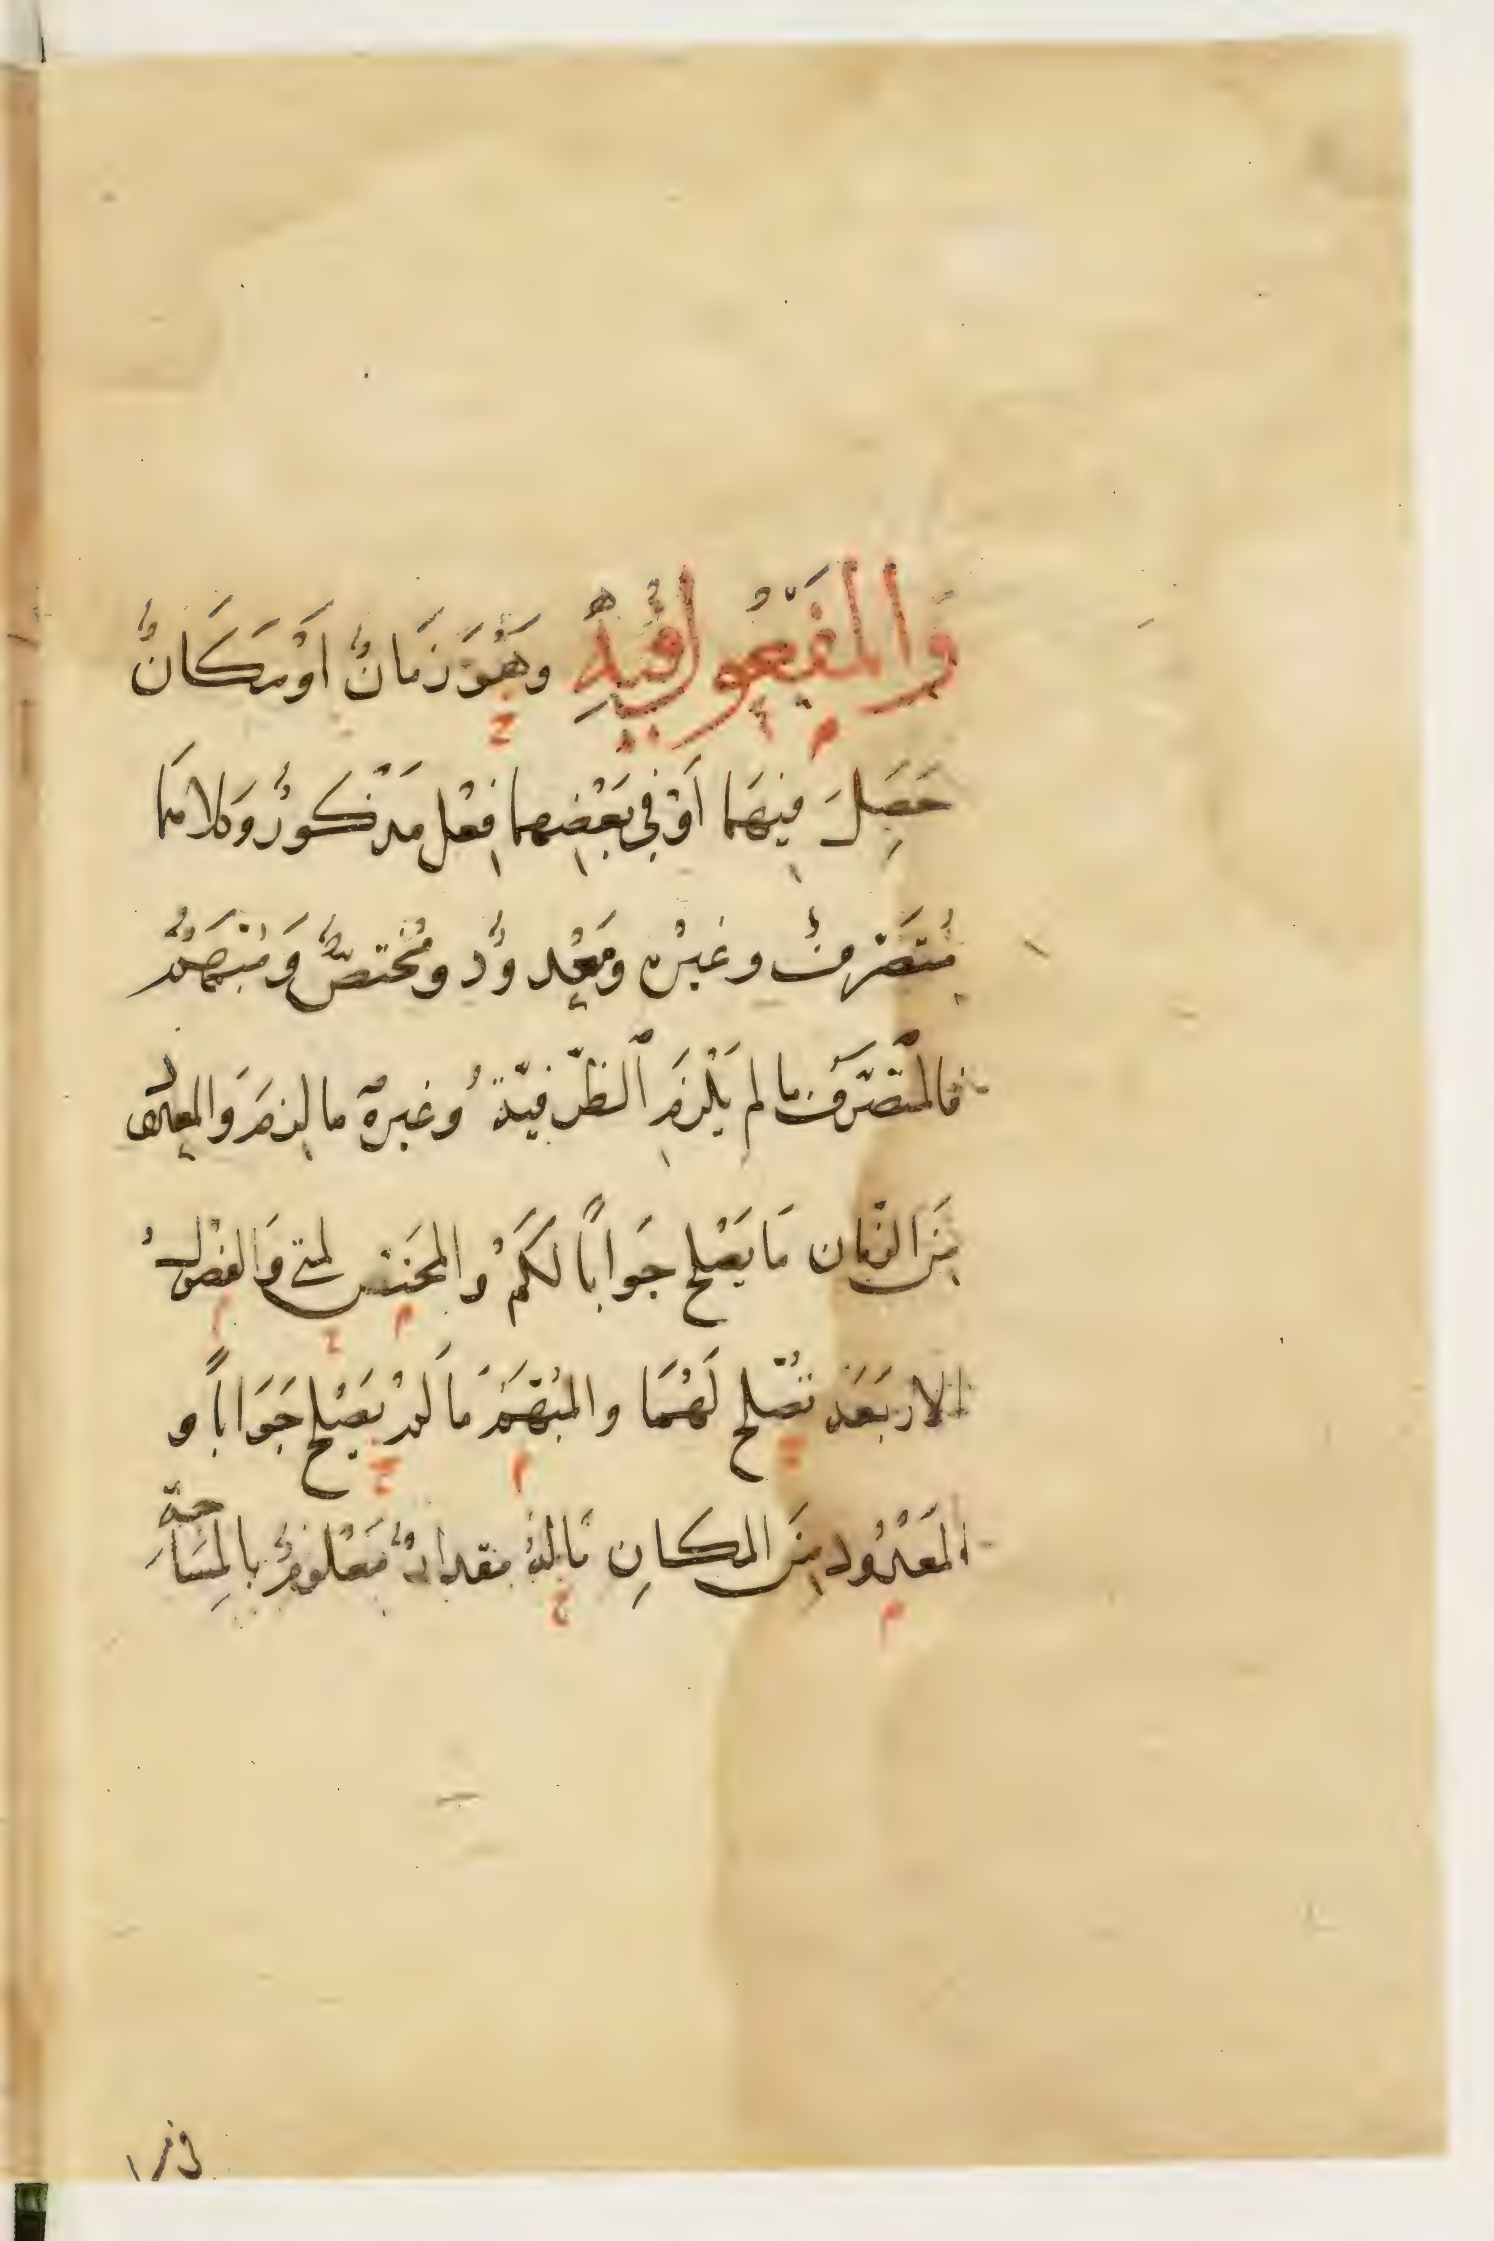 وَالمَفْعُولُ فِيهِ وَهُوَ زَمَانٌ اَوْ مَكَانٌ
حَصَلَ فِيهَما اَوْ فِي بَعْضِهما فِعْل مَذْكورٌ وَكلاهمَا
مُتَصَرِّفٌ وغيرُه ومَعْدودٌ ومُخْتصٌّ وَمُبْهَمٌ
فالمُتصَرّف ما لم يَلْزَمِ الظّرفيّة وُغيره ما لزمَ وَالمعدود
مِنَ الزمان مَا يَصْلح جَواباً لكَمْ والمختص لمتى وَالفصُول
الاربَعَة تصْلح لَهُمَا والمُبْهَم مَا لمْ يَصْلح جَوَاباً و
المَعْدُود مِنَ المكانِ مَا لهُ مقدارٌ مَعْلومٌ بالمِسَاحة